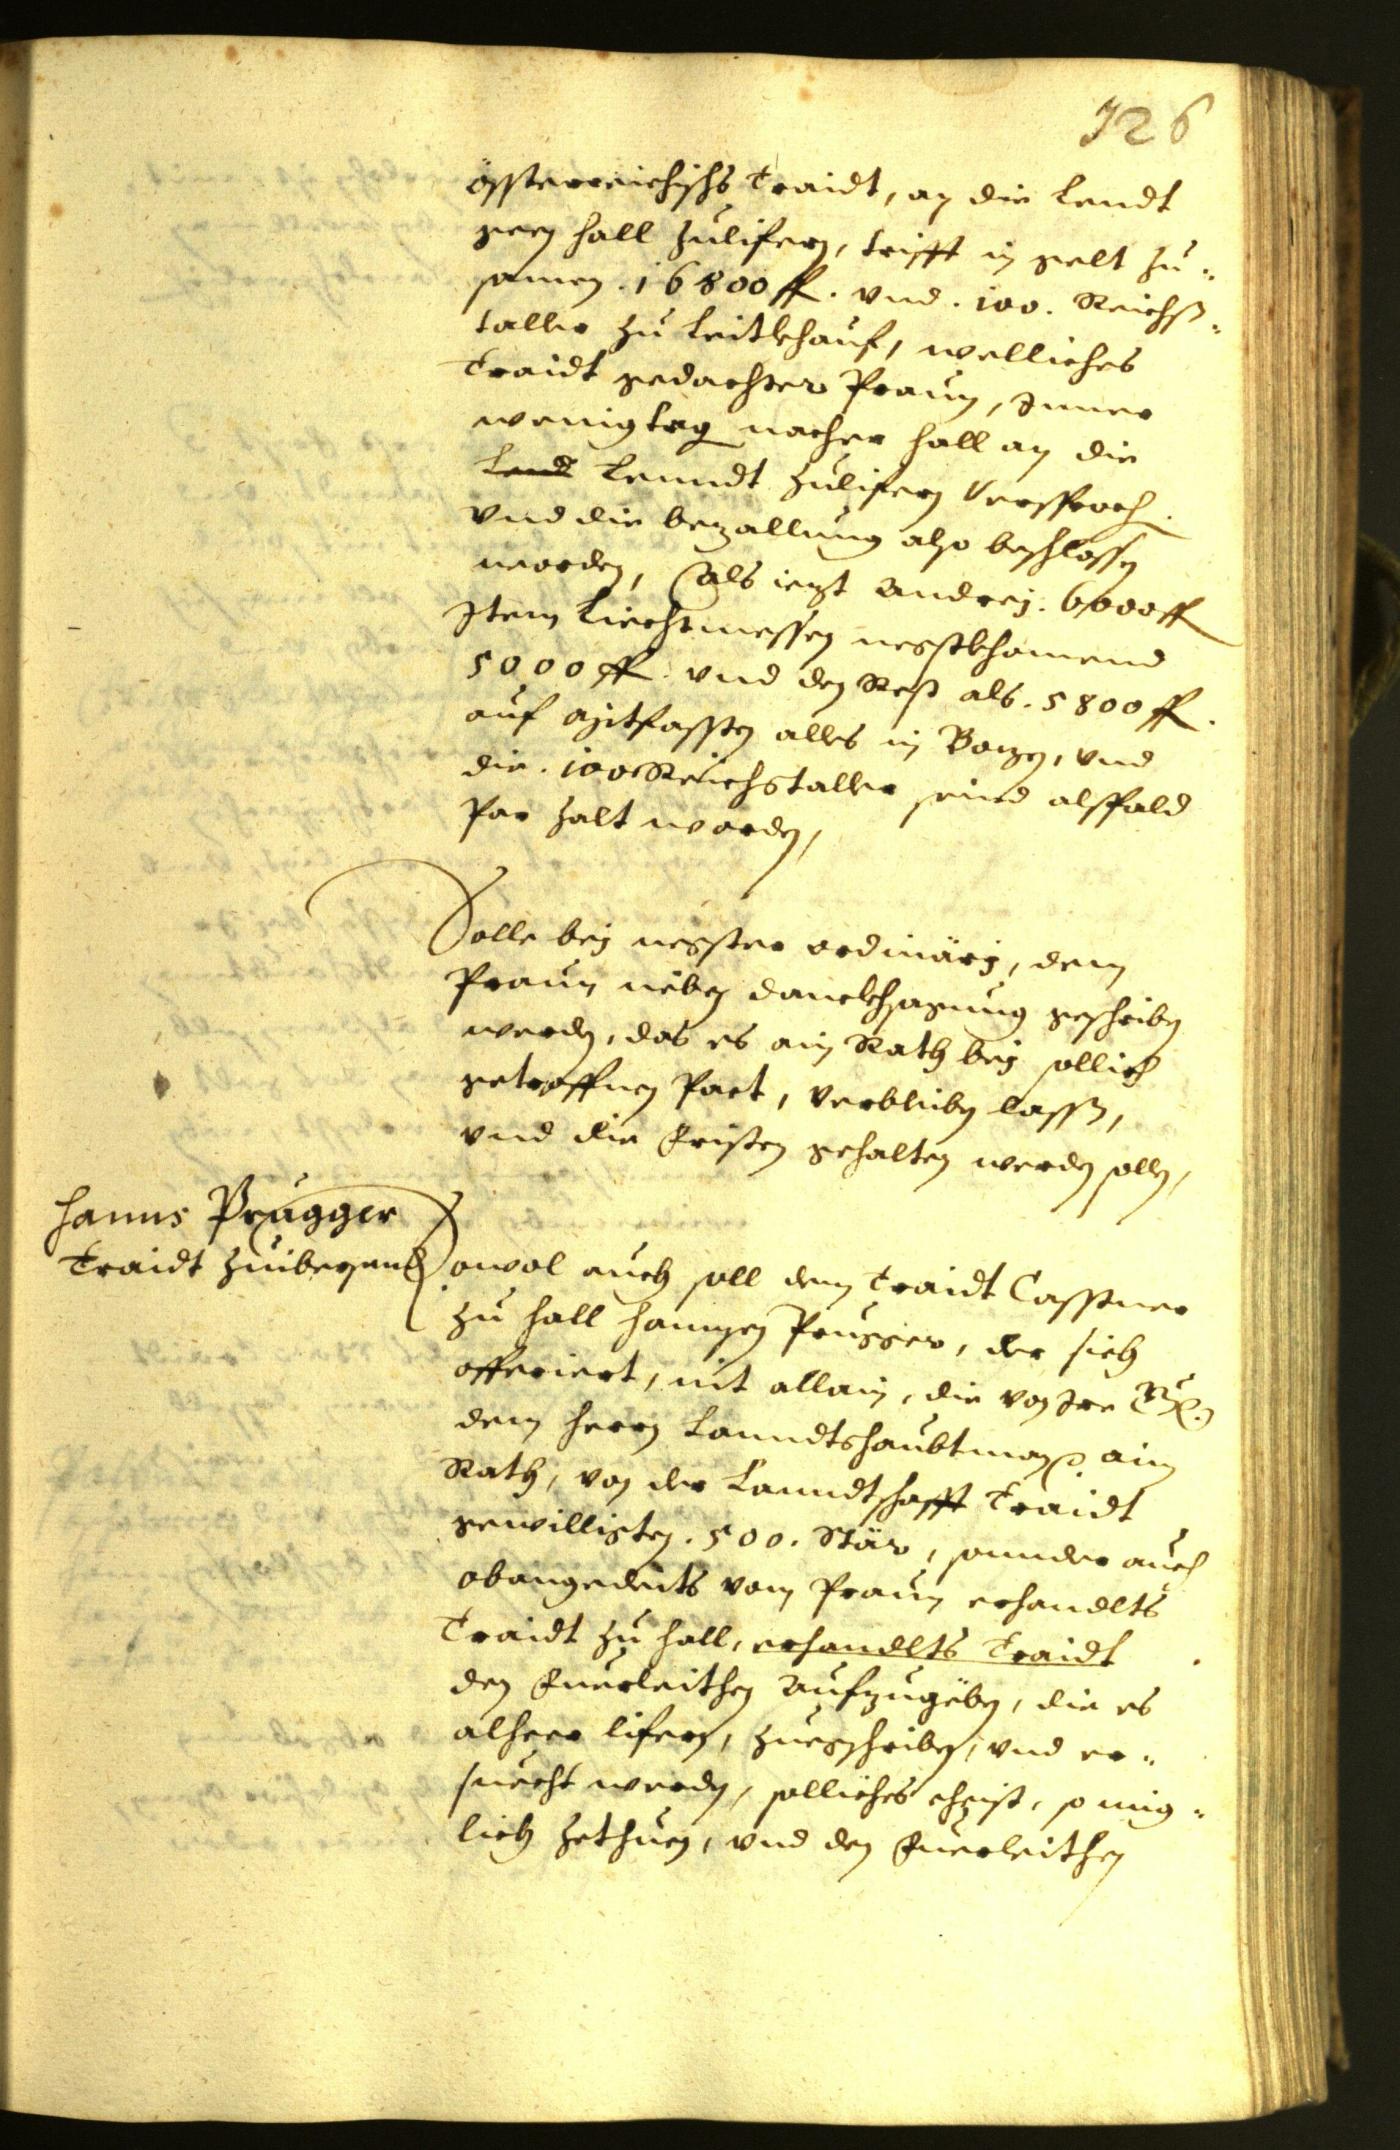 126
össterreichischs Traidt, an die Lendt
geen Hall zulifern, trifft in gelt zu¬
samen . 16800 ff. vnd . 100. Reichß¬
taller zu leitkhauf, welliches
Traidt gedachter Praun, Inner
wenig tag nacher Hall an die
Lend Lenndt zulifern versproch.
vnd die bezallung also beschlossn
worden, als iezt Andrej. 6000 ff
Item Liechtmessen negstkhomend
5000 ff. vnd den Rest als. 5800 ff.
auf mitfassten alles in Bozen, vnd
die. 100 Reichstaller seind alspald
Par zalt worden,
Solle bej negster ordinärj, dem
Praun nëben danckhsagung geschriben
werden, das es ain Rath bej sollich
getroffnen Pact, verbliben lassn,
vnd die Fristen gehalten werden sollen,
Hanns Prugger
Traidt zuibersend
Sowol auch soll dem Traidt Casstner
zu Hall Hannsen Prugger, der sich
offeriert, nit allain, die von Ire
dem herrn Lanndtshaubtman ain
Rath, von der Lanndtschafft Traidt
gewilligten. 500. Stär, sonnder auch
obangedeuts vom Praun erhandlts
Traidt zu Hall, erhandlts Traidt
den Fuerleithen Aufzugëben, die es
alheer lifern, zuegschriben, vnd er¬
suecht werden, solliches ehzist, so müg¬
lich zethuen, vnd den Fuerleithen